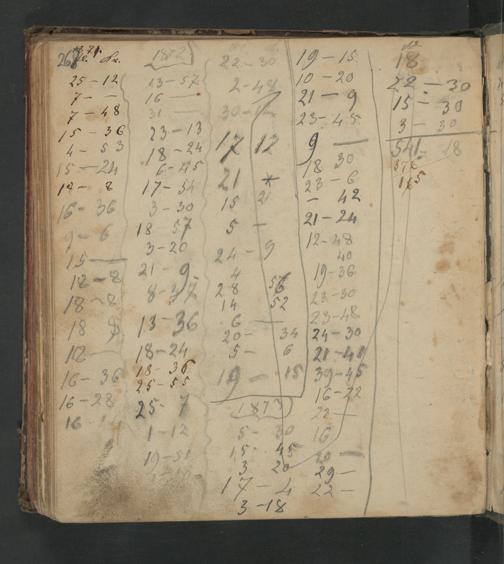 25-12
7-
7-48
15-36
4-53
15-24
18-8
16-36
9-6
15-
18-8
18-8
18 8
18-
16-36
16-28
16
1872
13-57
16-
31-
23-13
18-24
6-45
17-54
3-30
18 57
3-20
21-9
8-37
13-36
18-24
18-36
25-55
25-7
1-12
19-51
22-30
2-48
30-
17 12
21 *
15 21
5-
24-9
4
28 56
14 52
6-
20-34
5-6
19-15
1873
5-30
15-45
3 20
17-4
3-18
19-15
10-20
21-9
23-45
9-
18 30
23-6
-42
21-24
12-48
40
19-36
23-30
23-48
24-30
21-41
39-45
16-22
22-
16
20-
29-
22-
18
22-30
15-30
3-30
541-18